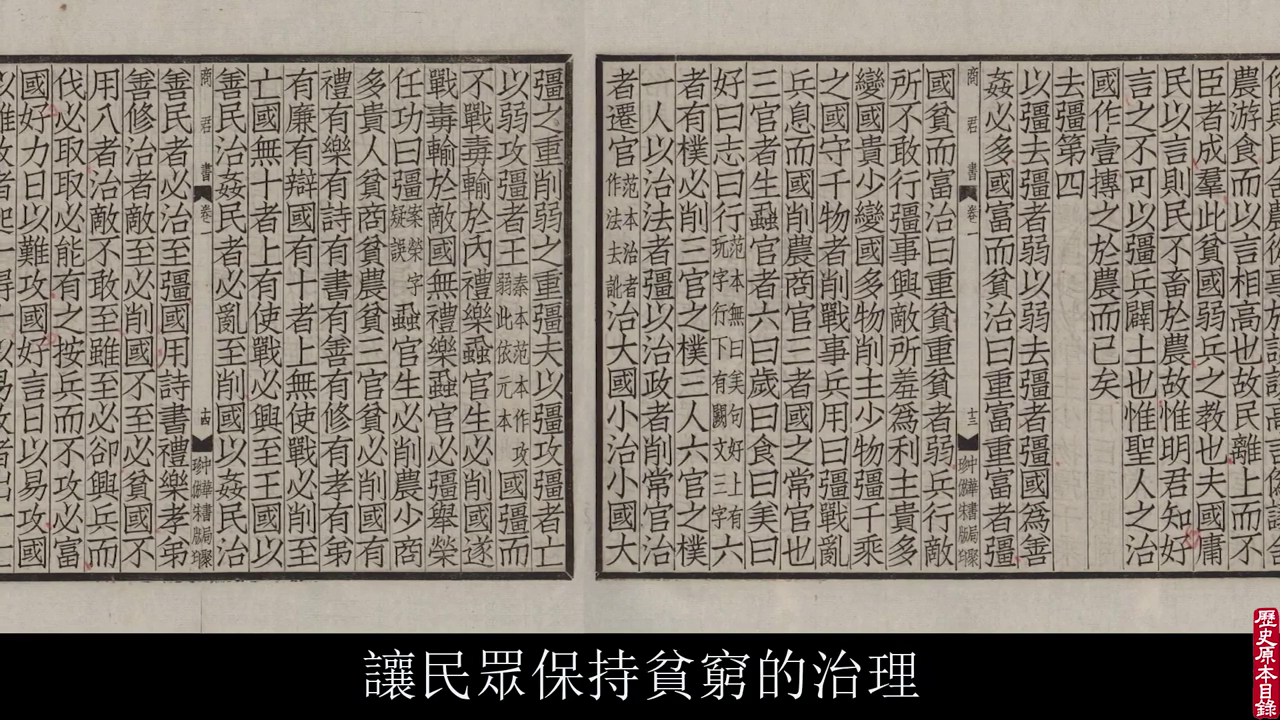 農游食而以言相高也故民離上而不
臣者成羣此貧國弱兵之教也夫國庸
民以言則民不畜於農故惟明君知好
言之不可以彊兵闢土也惟聖人之治
國作壹摶之於農而已矣
去彊第四
以彊去彊者弱以弱去彊者彊國爲善
姦必多國富而貧治曰重富重富者彊
商君書 卷一 十三 中華書局聚珍倣宋版印
國貧而富治曰重貧重貧者弱兵行敵
所不敢行彊事興敵所羞爲利主貴多
變國貴少變國多物削主少物彊千乘
之國守千物者削戰事兵用曰彊戰亂
兵息而國削農商官三者國之常官也
三官者生蝨官者六曰歲曰食曰美曰
好曰志曰行范本無曰美句好上有玩字行下有闕文三字六
者有樸必削三官之樸三人六官之樸
一人以治法者彊以治政者削常官治
者遷官范本治者作法去訛治大國小治小國大
彊之重削弱之重彊夫以彊攻彊者亡
以弱攻彊者王秦本范本作攻弱此依元本國彊而
不戰毒輸於內禮樂蝨官生必削國遂
戰毒輸於敵國無禮樂蝨官必彊舉榮
任功曰彊案榮字疑誤蝨官生必削農少商
多貴人貧商貧農貧三官貧必削國有
禮有樂有詩有書有善有修有孝有弟
有廉有辯國有十者上無使戰必削至
亡國無十者上有使戰必興至王國以
善民治姦民者必亂至削國以姦民治
商君書 卷一 十四 中華書局聚珍倣宋版印
善民者必治至彊國用詩書禮樂孝弟
善修治者敵至必削國不至必貧國不
用八者治敵不敢至雖至必卻興兵而
伐必取取必能有之按兵而不攻必富
國好力日以難攻國好言日以易攻國
讓民眾保持貧窮的治理
歷史原本目錄